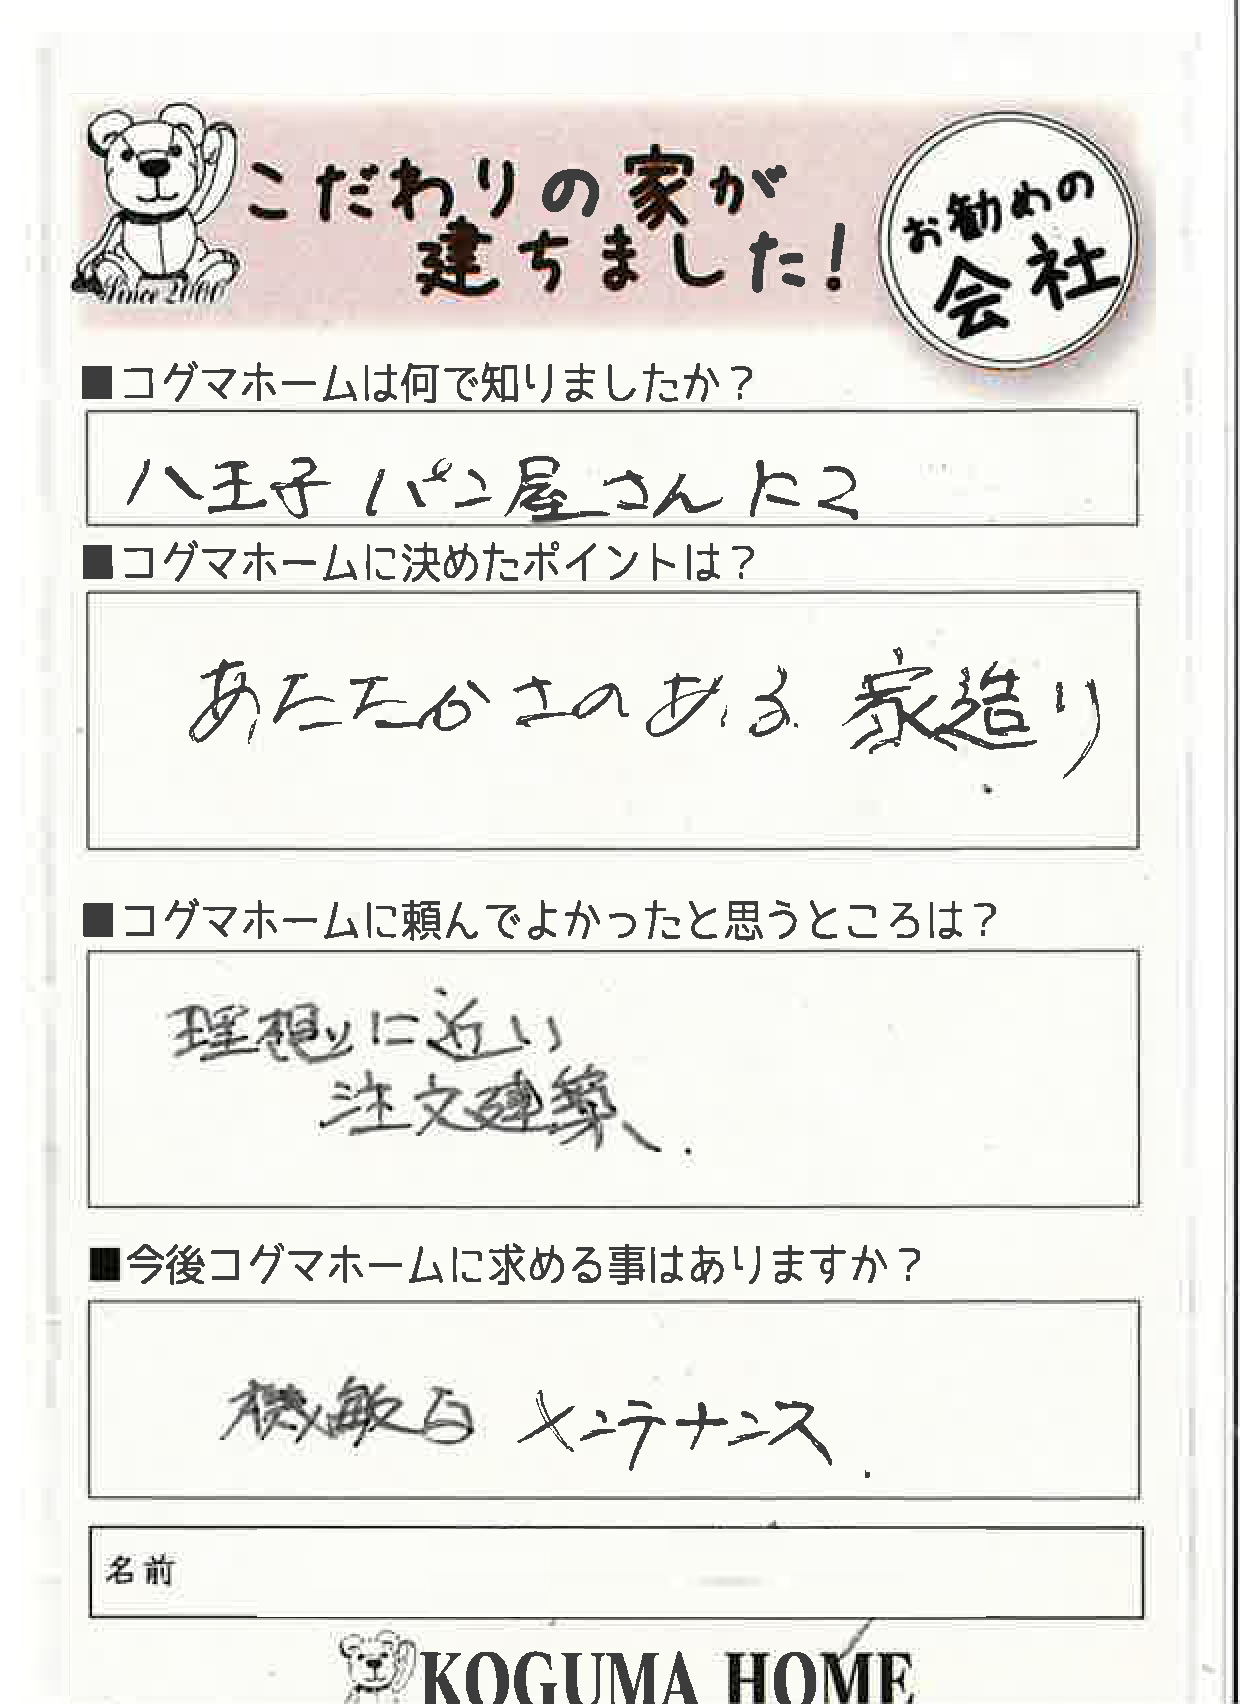 こだわりの家が
建ちました!
お勧めの
会社
Since 2000
■コグマホームは何で知りましたか？
八王子 パン屋さんにて
■コグマホームに決めたポイントは？
あたたかさのある 家造り
■コグマホームに頼んでよかったと思うところは？
理想に近い
注文建築.
■今後コグマホームに求める事はありますか？
機敏な メンテナンス.
名前
KOGUMA HOME